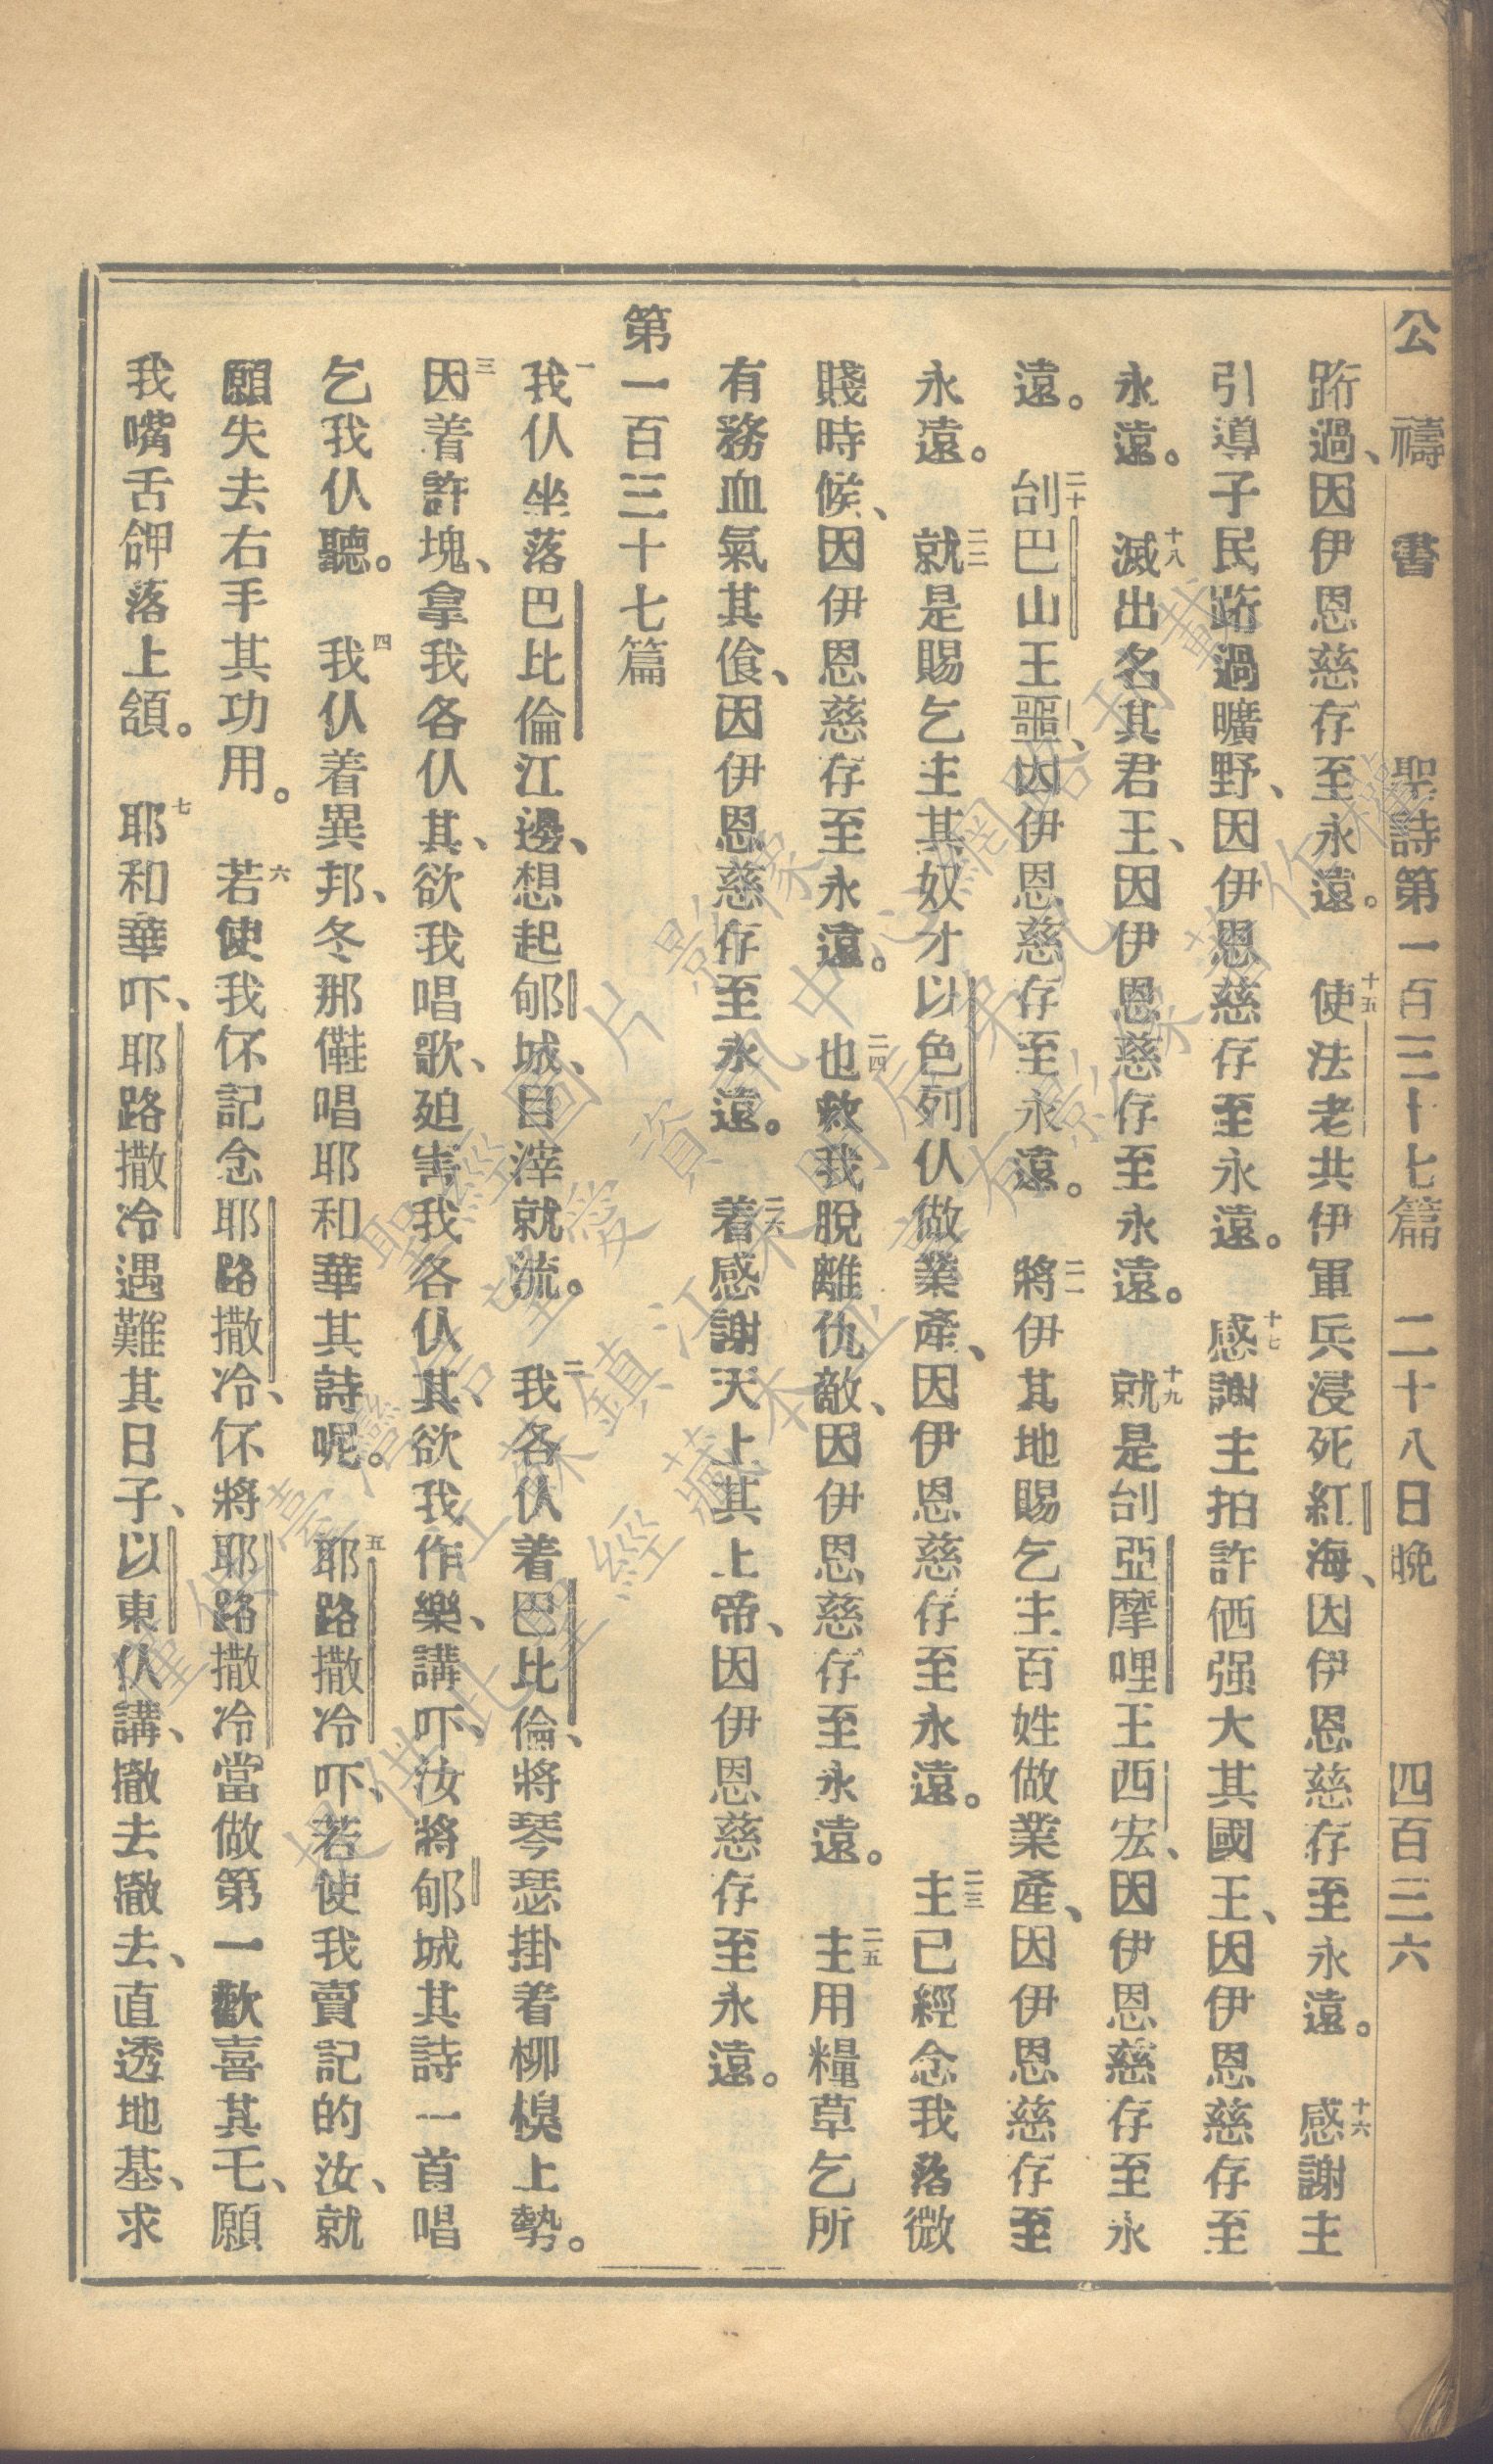 公禱書 聖詩第一百三十七篇 二十八日晚 四百三六
跴過、因伊恩慈存至永遠。十五使法老共伊軍兵浸死紅海、因伊恩慈存至永遠。十六感謝主
引導子民跴過曠野、因伊恩慈存至永遠。十七感謝主拍許価强大其國王、因伊恩慈存至
永遠。十八滅出名其君王、因伊恩慈存至永遠。十九就是刣亞摩哩王西宏、因伊恩慈存至永
遠。二十刣巴山王噩、因伊恩慈存至永遠。二一將伊其地賜乞主百姓做業產、因伊恩慈存至
永遠。二二就是賜乞主其奴才以色列仈做業產、因伊恩慈存至永遠。二三主已經念我落微
賤時候、因伊恩慈存至永遠。二四也救我脫離仇敵、因伊恩慈存至永遠。二五主用糧草乞所
有務血氣其飱、因伊恩慈存至永遠。二六着感謝天上其上帝、因伊恩慈存至永遠。
第一百三十七篇
一我仈坐落巴比倫江邊、想起郇城、目滓就流。二我各仈着巴比倫、將琴瑟掛着柳模上勢。
三因着許塊、拿我各仈其、欲我唱歌、廹害我各仈其、欲我作樂、講吓、汝將郇城其詩一首唱
乞我仈聽。四我仈着異邦、冬那儺唱耶和華其詩呢。五耶路撒冷吓、若使我賣記的汝、就
願失去右手其功用。六若使我伓記念耶路撒冷、伓將耶路撒冷當做第一歡喜其乇、願
我嘴舌舺落上頷。七耶和華吓、耶路撒冷遇難其日子、以東仈講、撤去撤去、直透地基、求